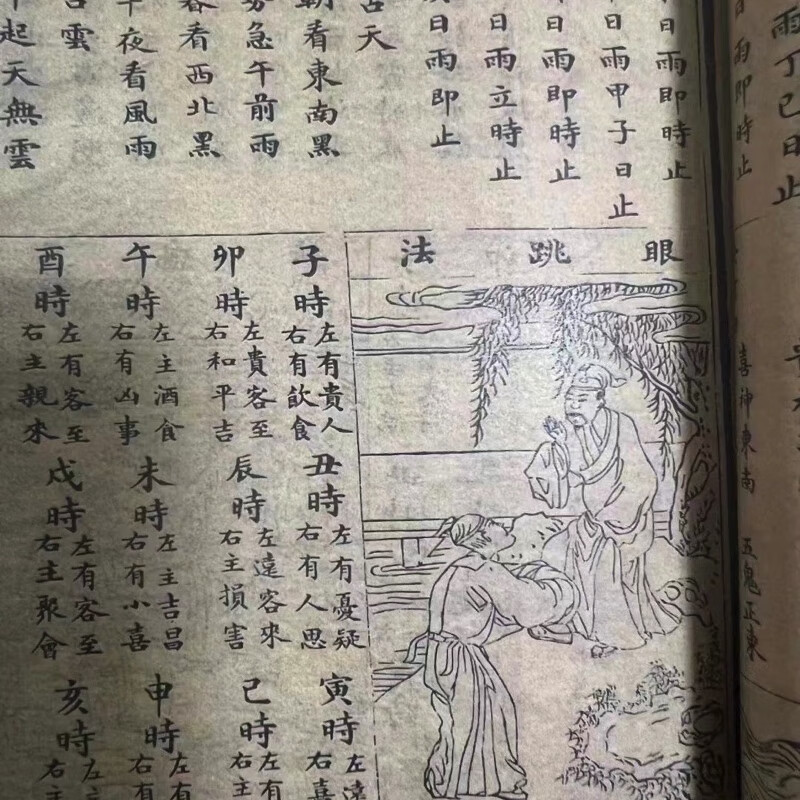 雨丁巳日止
日雨即時止
喜神東南 五鬼正東
日雨即時止
日雨甲子日止
日雨即時止
日雨立時止
日雨即止
天
看東南黑
急午前雨
看西北黑
夜看風雨
雲
起天無雲
眼跳法
子時
左有貴人
右有飲食
丑時
左有憂疑
右有人思
寅時
左遠
右喜
卯時
左貴客至
右和平吉
辰時
左遠客來
右主損害
巳時
左有
右主
午時
左主酒食
右有凶事
未時
左主吉昌
右有小喜
申時
左有
右有
酉時
左有客至
右主親來
戌時
左有客至
右主聚會
亥時
左主
右主